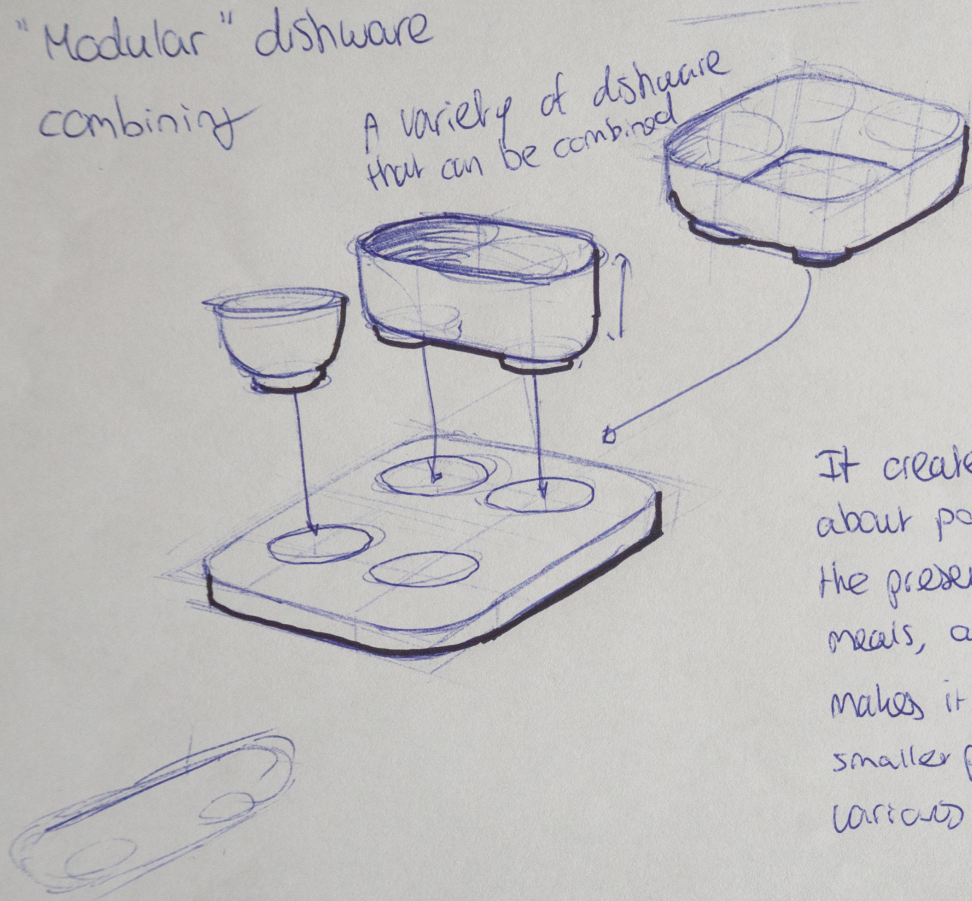 "Modular" dishware
combining
A variety of dishware
that can be combined
It create
about po
the presen
meals, a
makes it
smaller p
various